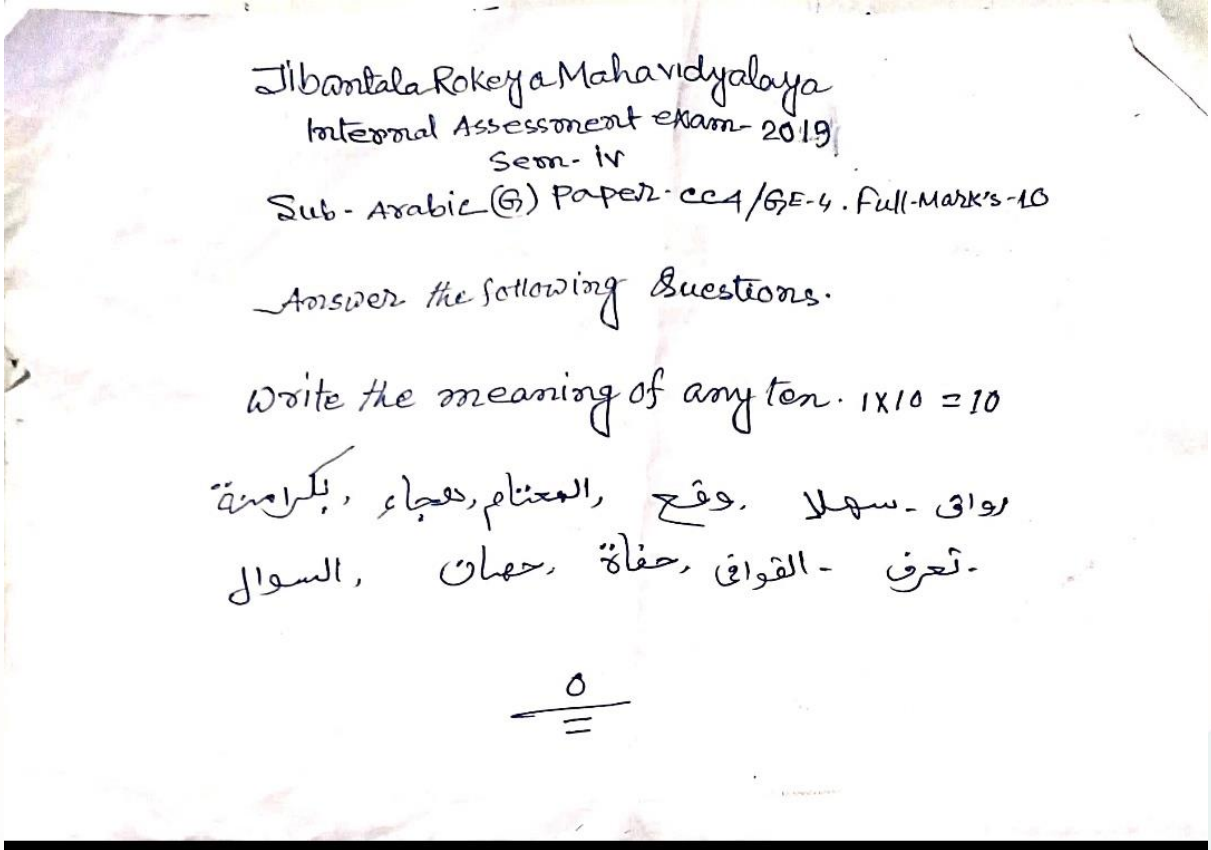 Jibantala Rokeya Mahavidyalaya
Internal Assessment exam- 2019
Sem- iv
Sub - Arabic (G) Paper- CC4/GE-4. Full-Mark's-10
Answer the following Questions.
Write the meaning of any ten. 1X10 = 10
رواق - سهلا , وقع , المعتام , هجاء , بكرامة
- تعرف - القوافى , حفاة , حصان , السوال